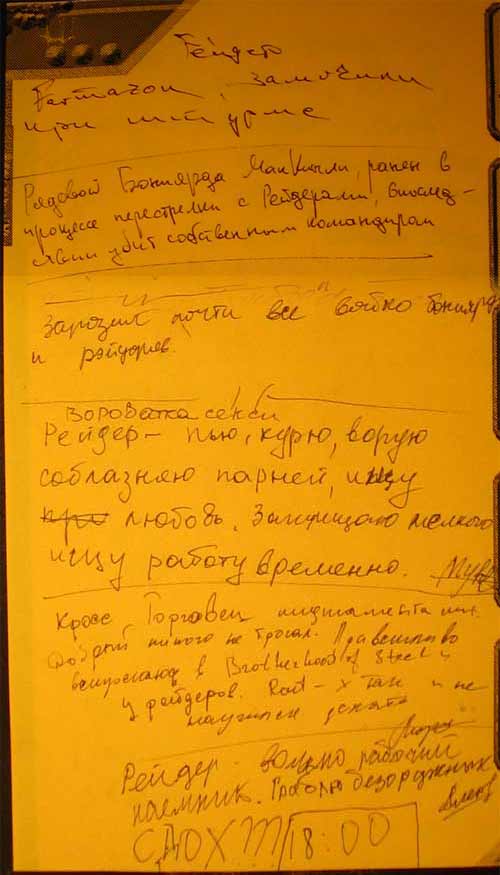 Рейдер
замочили
при штурме
Рядовой Бонярда МакКинли, ранен в
процессе перестрелки с Рейдерами, впослед-
ствии убит собственным командиром
Заразил почти все войско бонярд
и рэйдеров.
Воровка секси
Рейдер – пью, курю, ворую
соблазняю парней, ищу
любовь. Защищаю мелкого
ищу работу временно.
Кросс Торговец
Добрый никого не трогал.
в Brotherhood of Steel и
у рейдеров. Rad-X так и не
научился юзать
Рейдер. вольно рабочий
наёмник. Граблю безоружных
СДОХ 18:00